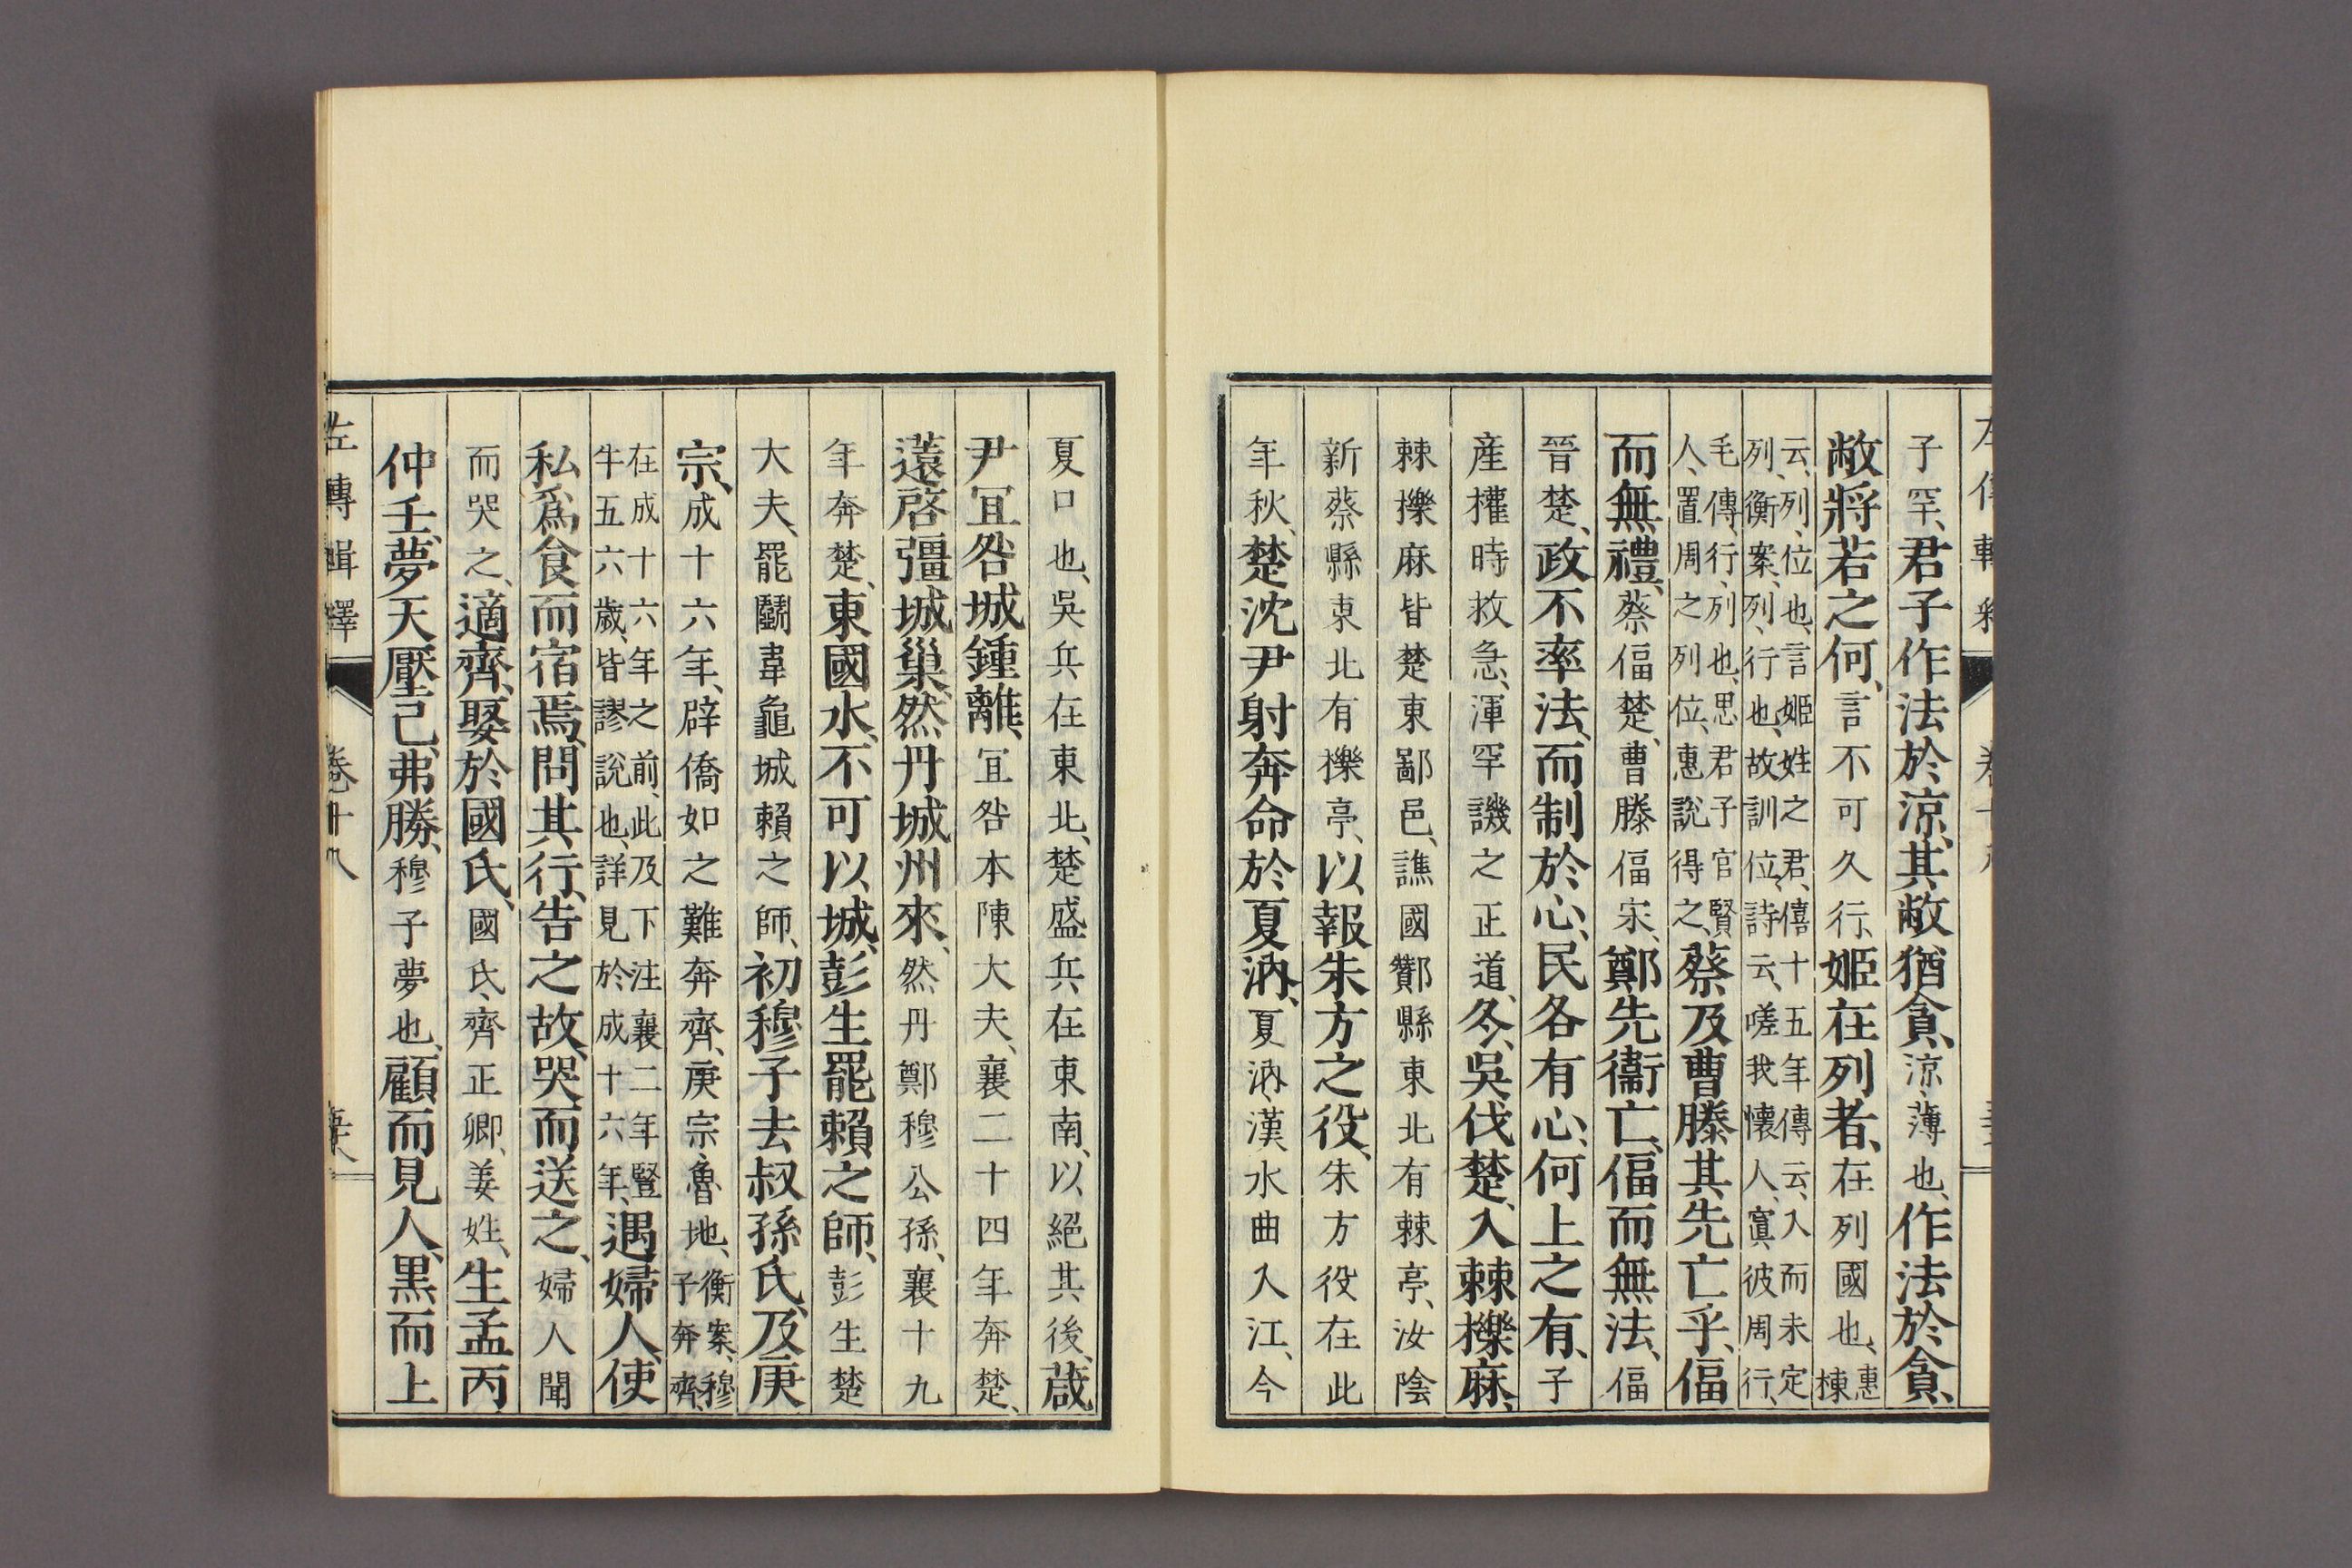 子罕、君子作法於涼、其敝猶貪、涼、薄也、作法於貪、
敝將若之何、言不可久行、姬在列者、在列國也、惠棟
云、列、位也、言姬姓之君、僖十五年傳云、入而未定
列、衡案、列、行也、故訓位、詩云、嗟我懷人、寘彼周行、
毛傳、行、列也、思君子官賢
人、置周之列位、惠說得之、蔡及曹滕其先亡乎、偪
而無禮、蔡偪楚、曹滕偪宋、鄭先衞亡、偪而無法、偪
晉楚、政不率法、而制於心、民各有心、何上之有、子
產權時救急、渾罕譏之正道、冬、吳伐楚、入棘櫟麻、
棘櫟麻皆楚東鄙邑、譙國酇縣東北有棘亭、汝陰
新蔡縣東北有櫟亭、以報朱方之役、朱方役在此
年秋、楚沈尹射奔命於夏汭、夏汭、漢水曲入江、今
夏口也、吳兵在東北、楚盛兵在東南、以絕其後、葴
尹冝咎城鍾離、冝咎本陳大夫、襄二十四年奔楚、
薳啓彊城巢、然丹城州來、然丹鄭穆公孫、襄十九
年奔楚、東國水、不可以城、彭生罷賴之師、彭生楚
大夫、罷鬭韋龜城賴之師、初穆子去叔孫氏、及庚
宗、成十六年、辟僑如之難奔齊、庚宗、魯地、衡案、穆子奔齊、
在成十六年之前、此及下注襄二年豎
牛五六歲、皆謬說也、詳見於成十六年、遇婦人、使
私爲食而宿焉、問其行、告之故、哭而送之、婦人聞
而哭之、適齊、娶於國氏、國氏、齊正卿、姜姓、生孟丙、
仲壬、夢天壓己、弗勝、穆子夢也、顧而見人、黑而上
左傳輯釋
卷十八